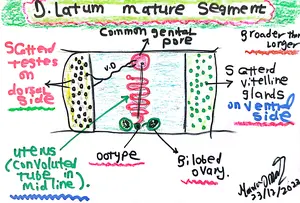 D. Latum mature Segment
Common genital
pore
broader than
longer
SCatterd
testes
on
dorsal
side
v.D
SCatterd
vitelline
glands
on ventral
side
uterus
(convoluted
tube in
midline).
ootype
Bilobed
ovary.
23/12/2022